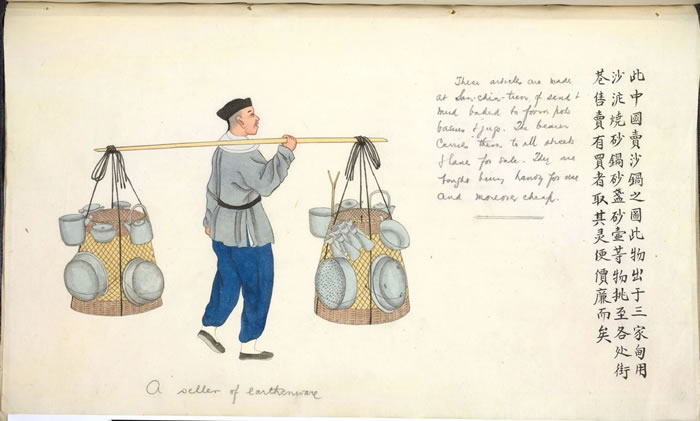 此中國賣沙鍋之圖此物出于三家甸用
沙泥燒砂鍋砂盞砂壺等物挑至各处街
巷售賣有買者取其灵便價廉而矣
These articles are made
at San-chia-tien of sand &
mud baked to form pots
basins & jugs. The bearer
carries them to all streets
& lane for sale. They are
bought being handy for use
and moreover cheap.
A seller of earthenware